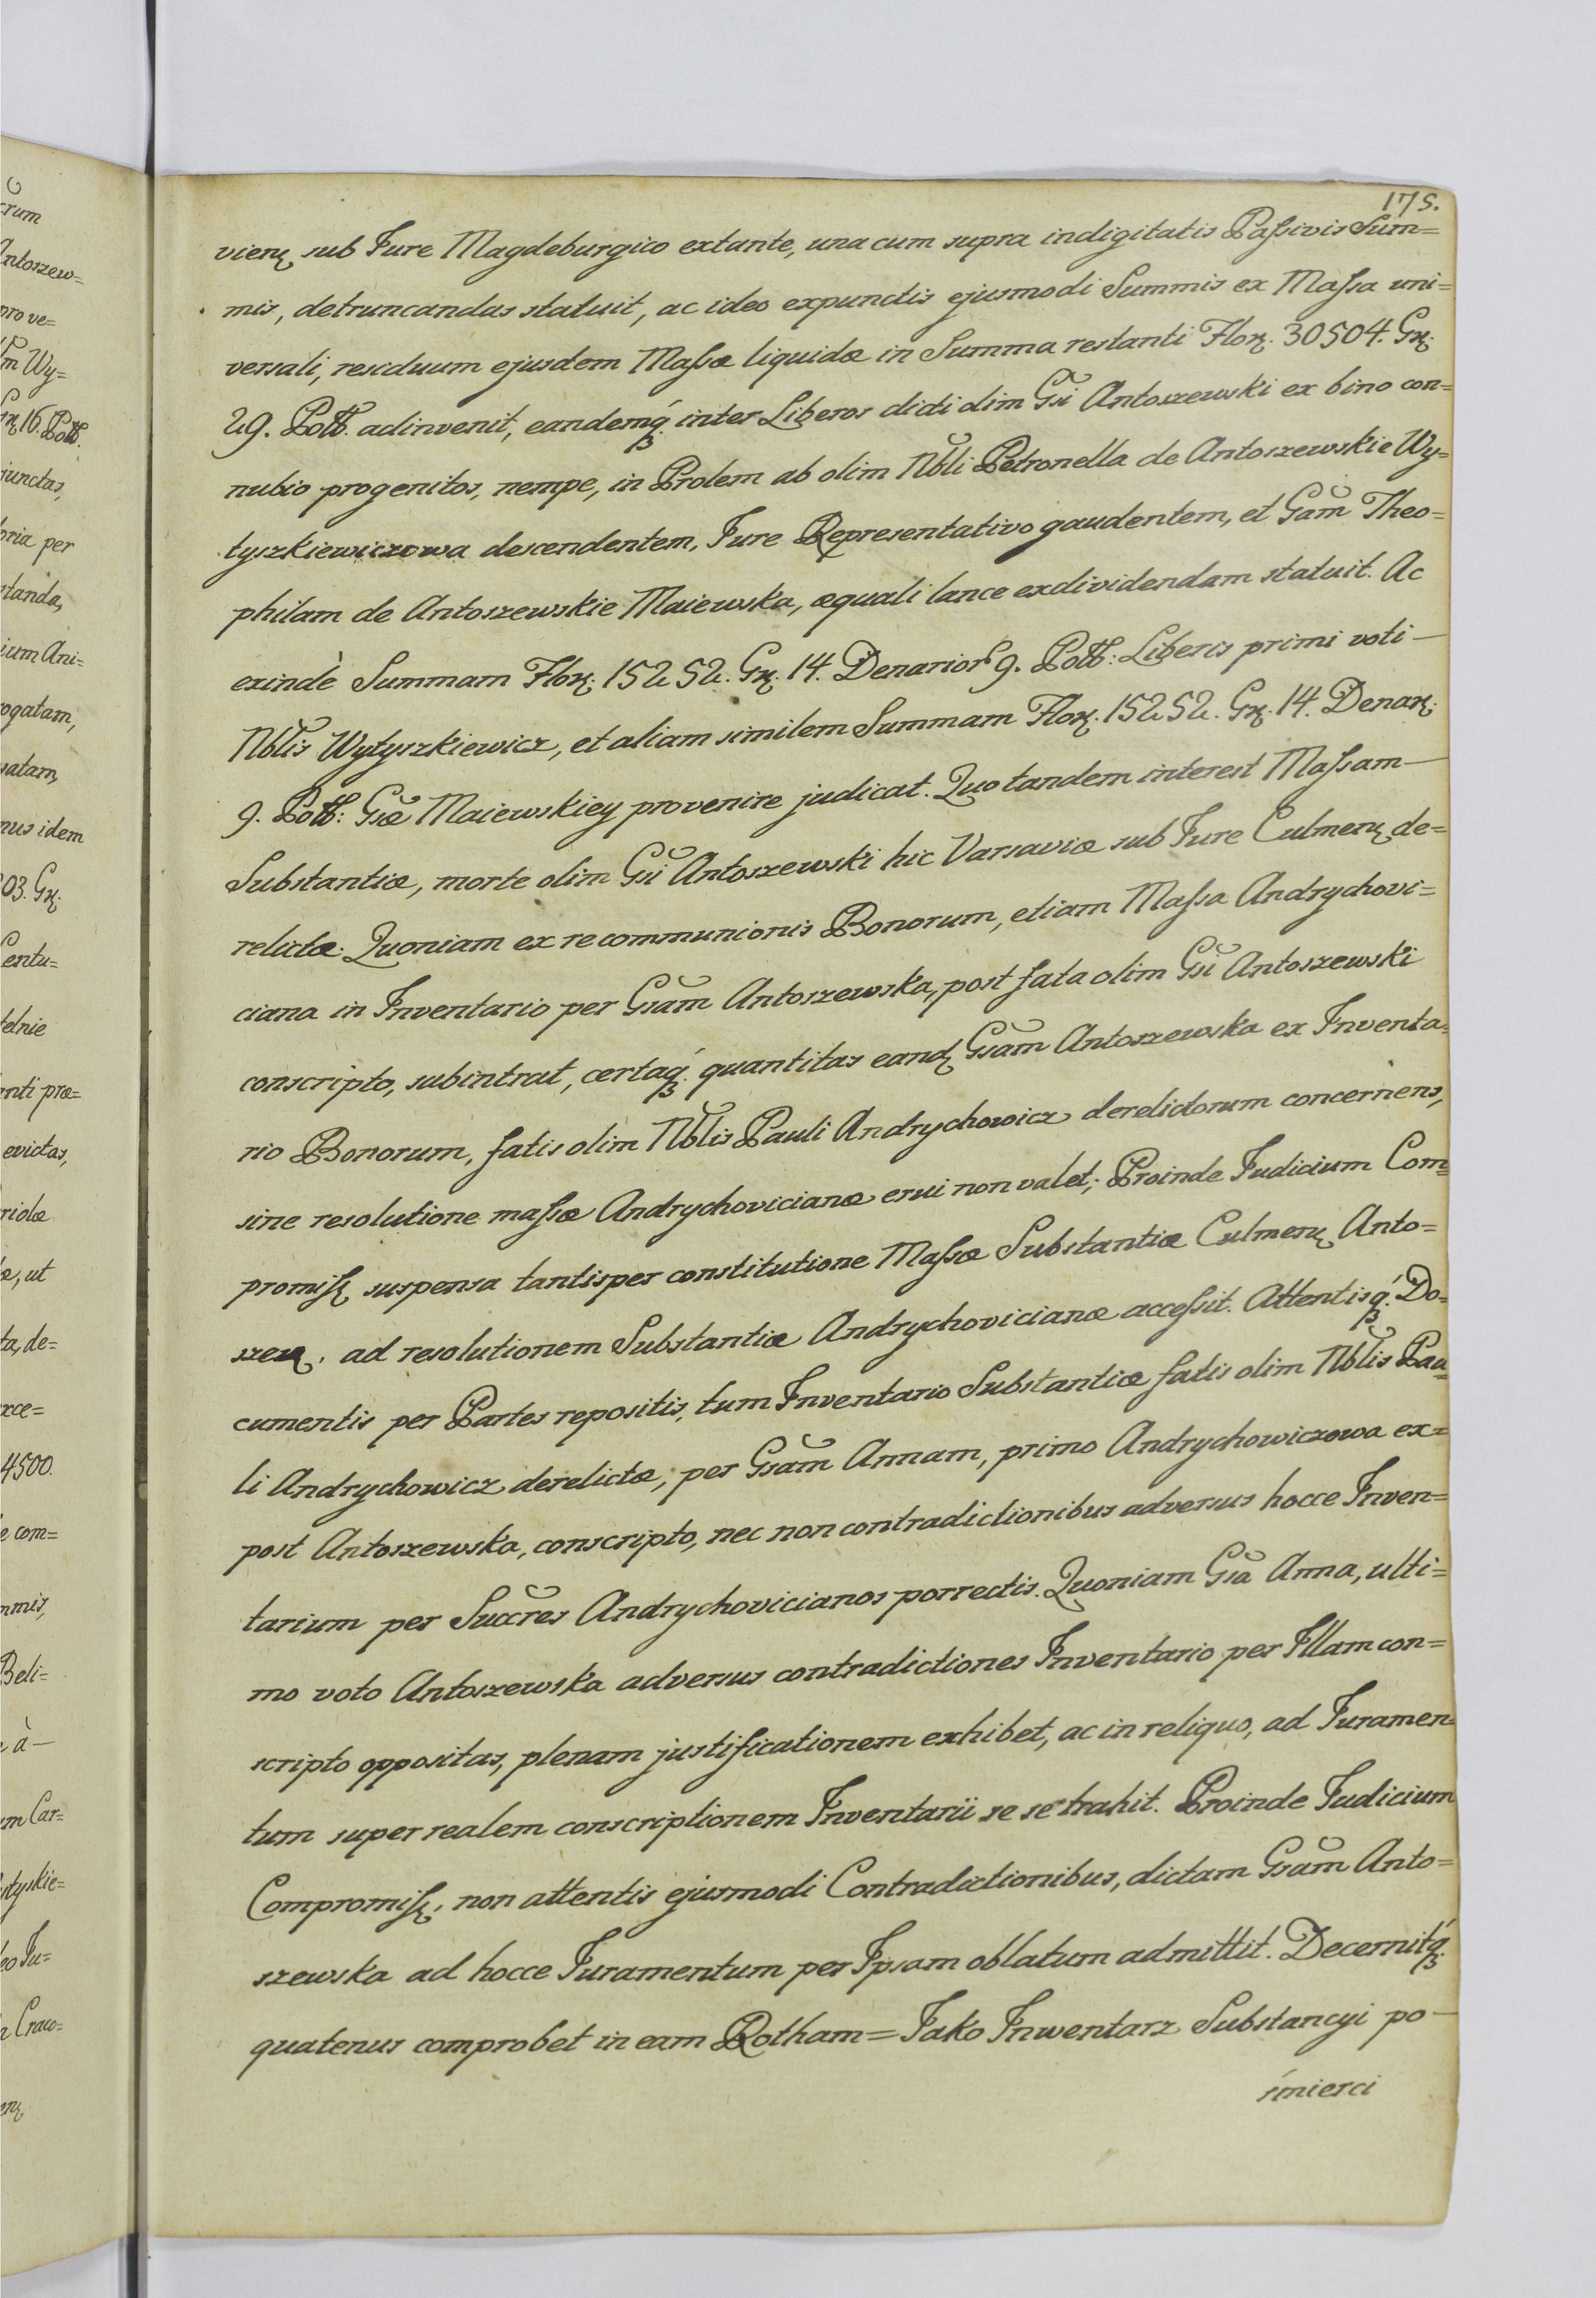 175.
vien: sub Jure Magdeburgico extante, una cum supra indigitatis Passivis Sum=
mis, detruncandas statuit, ac ideo expunctis ejusmodi Summis ex Massa uni=
versali, residuum ejusdem Massæ liquidæ in Summa restanti Flor: 30504. Gr:
29. Poll. adinvenit, eandemq́ꝫ inter Liberos dicti olim Gsi Antoszewski ex bino con=
nubio progenitos, nempe, in Prolem ab olim Nbli Petronella de Antoszewskie Wy=
tyszkiewiczowa descendentem, Jure Representativo gaudentem, et Gam Theo=
philam de Antoszewskie Maiewska, æquali lance exdividendam statuit. Ac
exindè Summam Flor: 15252. Gr: 14. Denarior 9. Poll: Liberis primi voti —
Nblis Wytyszkiewicz, et aliam similem Summam Flor: 15252. Gr: 14. Denar:
9. Poll: Gsæ Maiewskiey provenire judicat. Quo tandem interest Massam —
Substantiæ, morte olim Gsi Antoszewski hic Varsaviæ sub Jure Culmen: de=
relictæ. Quoniam ex re communionis Bonorum, etiam Massa Andrychovi=
ciana in Inventario per Gsam Antoszewska, post fata olim Gsi Antoszewski
conscripto, subintrat, certaq́ꝫ quantitas eand: Gsam Antoszewska ex Inventa=
rio Bonorum, fatis olim Nblis Pauli Andrychowicz derelictorum concernens,
sine resolutione massæ Andrychovicianæ erui non valet; Proinde Judicium Com=
promiss: suspensa tantisper constitutione Massæ Substantiæ Culmen: Anto=
szew: ad resolutionem Substantiæ Andrychovicianæ accessit. Attentisq́ꝫ Do=
cumentis per Partes repositis, tum Inventario Substantiæ fatis olim Nblis Pau=
li Andrychowicz derelictæ, per Gsam Annam, primo Andrychowiczowa ex=
post Antoszewska, conscripto, nec non contradictionibus adversus hocce Inven=
tarium per Succres Andrychovicianos porrectis. Quoniam Gsa Anna, ulti=
mo voto Antoszewska adversus contradictiones Inventario per Illam con=
scripto oppositas, plenam justificationem exhibet, ac in reliquo, ad Juramen=
tum super realem conscriptionem Inventarii se se trahit. Proinde Judicium
Compromiss: non attentis ejusmodi Contradictionibus, dictam Gsam Anto=
szewska ad hocce Juramentum per Ipsam oblatum admittit. Decernitq́ꝫ
quatenus comprobet in eam Rotham = Jako Inwentarz Substancyi po —
śmierci